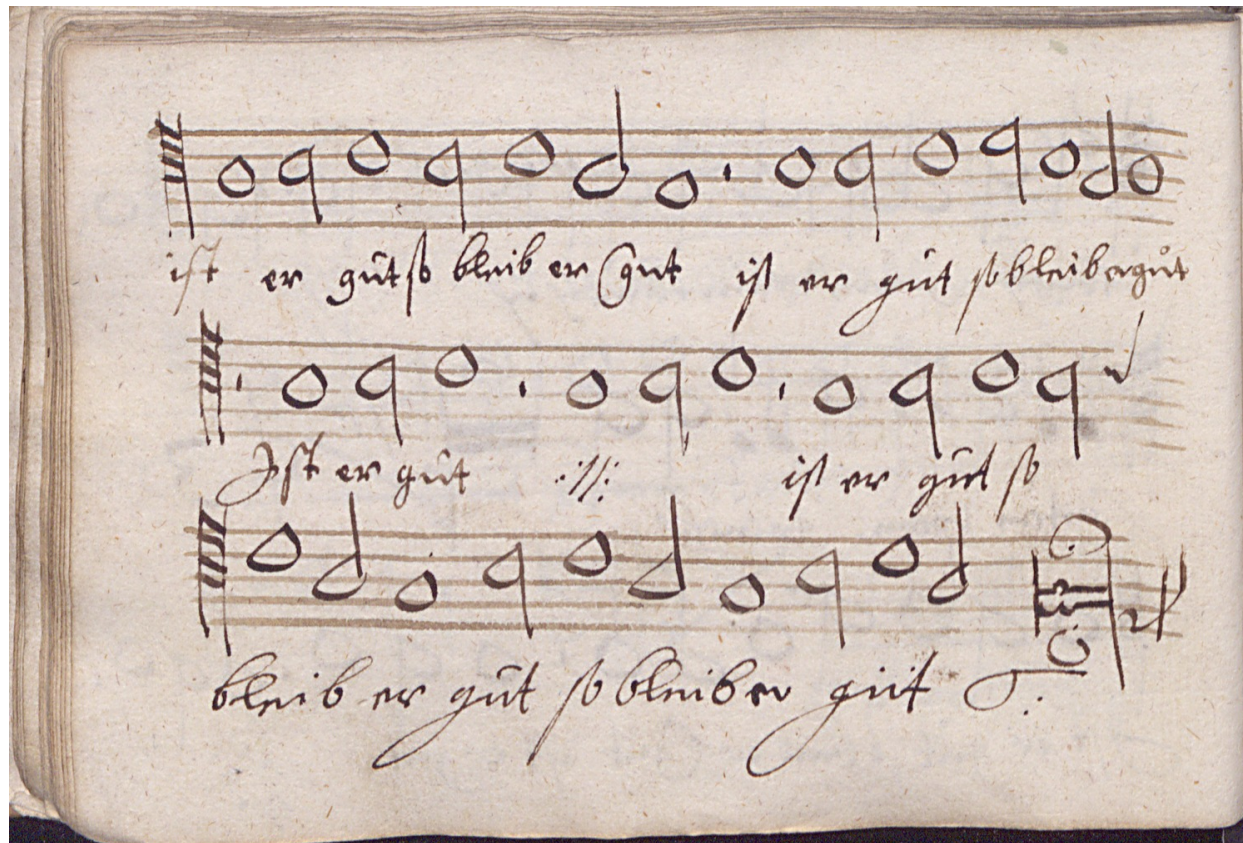 ist er gut so bleib er gut ist er gut so bleib er gut
Ist er gut :||: ist er gut so
bleib er gut so bleib er gut